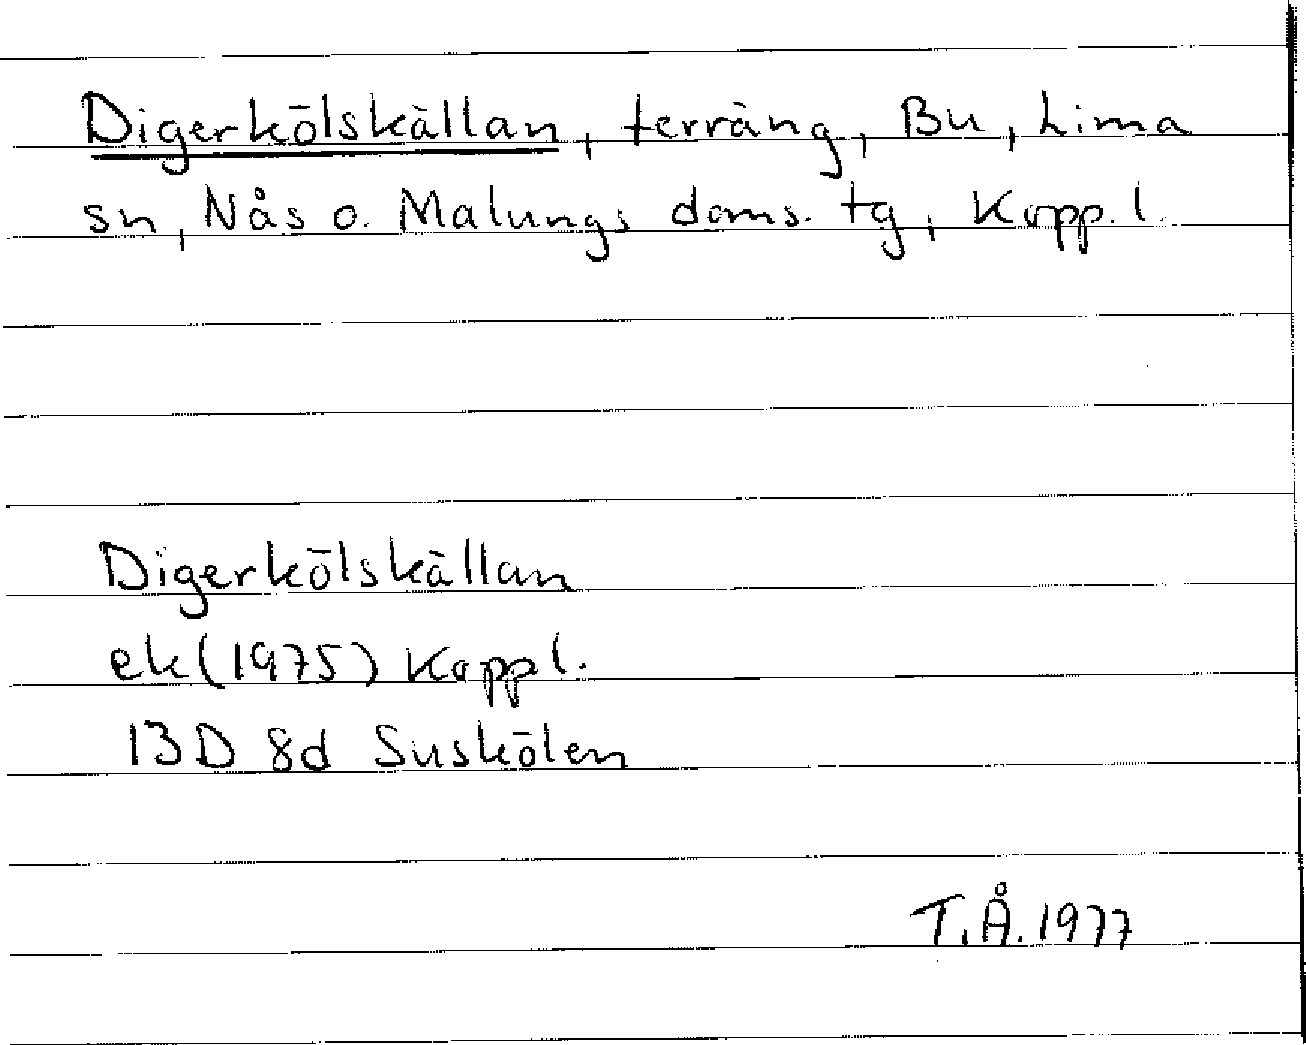 Digerkölskällan, terräng, Bu, Lima
sn, Nås o. Malungs doms. tg, Kopp. l.
Digerkölskällan
ek (1975) Koppl.
13D 8d Suskölen
T.Å. 1977